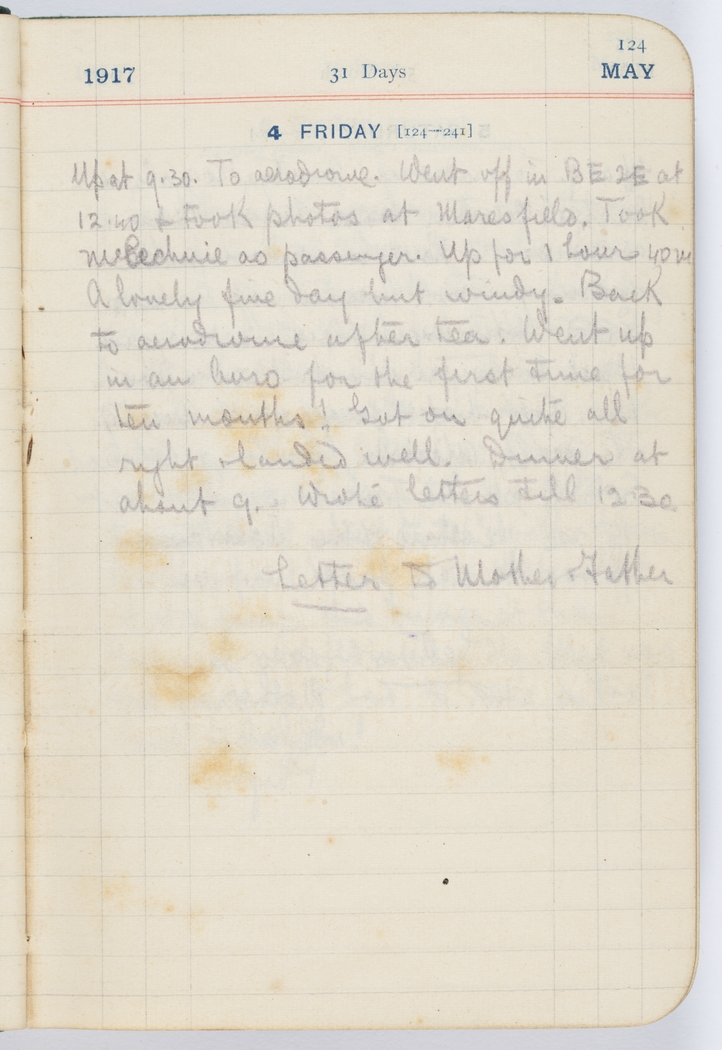 124
1917 31 Days MAY
4 FRIDAY [124-241]
Up at 9.30. To aerodrome. Went off in BE 2E at
12.40 & took photos at Maresfield. Took
McKechnie as passenger. Up for 1 hour 40m
A lovely fine day but windy. Back
to aerodrome after tea. Went up
in an Avro for the first time for
ten months! Got on quite all
right & landed well. Dinner at
about 9. Wrote letters till 12.30
Letter to Mother & Father